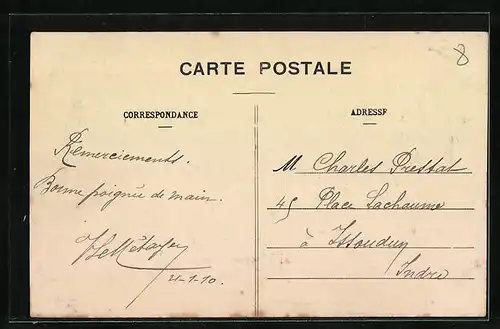 8
CARTE POSTALE
CORRESPONDANCE
ADRESSE
Remerciements.
Bonne poignée de main.
4-1-10.
M Charles Pressat
45 Place Lachaume
à Issoudun
Indre